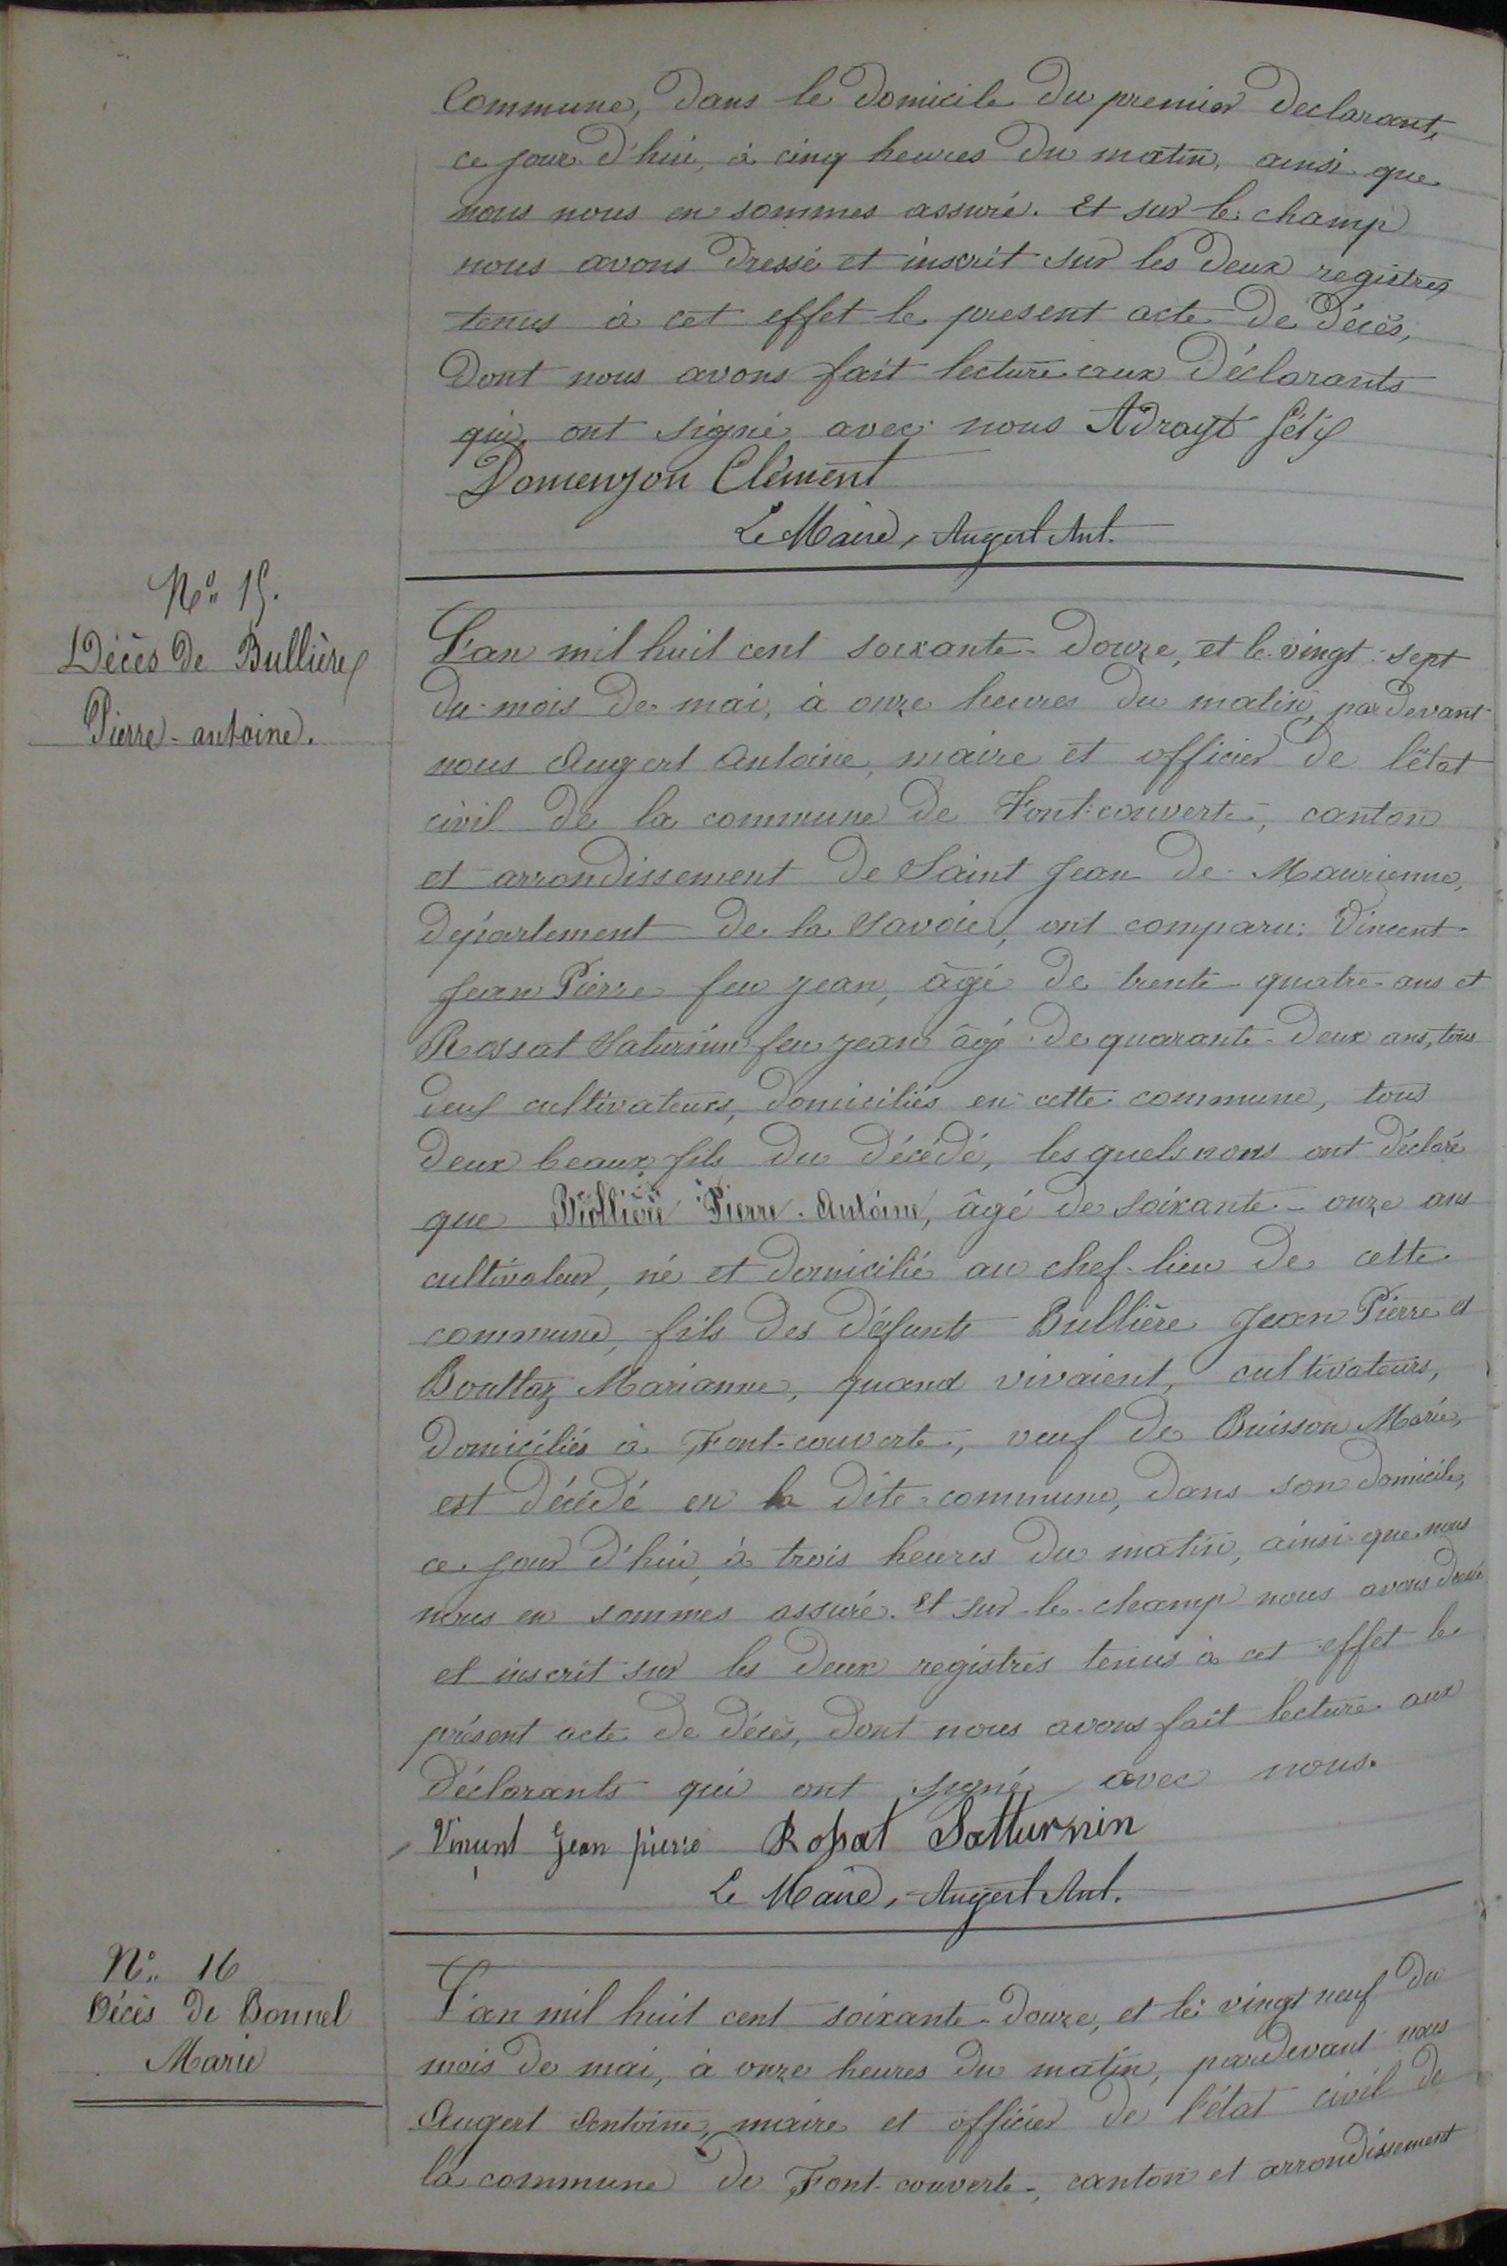 Commune, dans le domicile du premier declarant,
ce jour d'hui, à cinq heures du matin, ainsi que
nous nous en sommes assuré. Et sur le champ
nous avons dressé et inscrit sur les deux registres
tenus à cet effet le present acte de décès,
dont nous avons fait lecture aux déclarants
qui ont signé avec nous Adrayt félix
Domenjon Clément
Le Maire, Augert Ant.
N° 15.
Décès de Bullière
Pierre-antoine.
L'an mil huit cent soixante-douze, et le vingt-sept
du mois de mai, à onze heures du matin, pardevant
nous Augert Antoine, maire et officier de l'état
civil de la commune de Font-couverte, canton
et arrondissement de Saint Jean de Maurienne,
département de la Savoie, ont comparu: Vincent
Jean Pierre feu Jean, âgé de trente-quatre ans et
Rossat Saturnin feu Jean âgé de quarante-deux ans, tous
deux cultivateurs, domiciliés en cette commune, tous
deux beaux fils du décédé, lesquels nous ont déclaré
que Bullière Pierre-Antoine, âgé de soixante-onze ans
cultivateur, né et domicilié au chef-lieu de cette
commune, fils des défunts Bullière Jean Pierre et
Bouttaz Marianne, quand vivaient, cultivateurs,
domiciliés à Font-couverte, veuf de Buisson Marie,
est décédé en la dite commune, dans son domicile,
ce jour d'hui, à trois heures du matin, ainsi que nous
nous en sommes assuré. Et sur-le-champ nous avons dressé
et inscrit sur les deux registres tenus à cet effet le
présent acte de décès, dont nous avons fait lecture aux
déclarants qui ont signé avec nous.
Vincent Jean pierre Rossat Satturnin
Le Maire, Augert Ant.
N° 16
Décès de Bonnel
Marie
L'an mil huit cent soixante-douze, et le vingt neuf du
mois de mai, à onze heures du matin, pardevant nous
Augert Antoine, maire et officier de l'état civil de
la commune de Font-couverte, canton et arrondissement